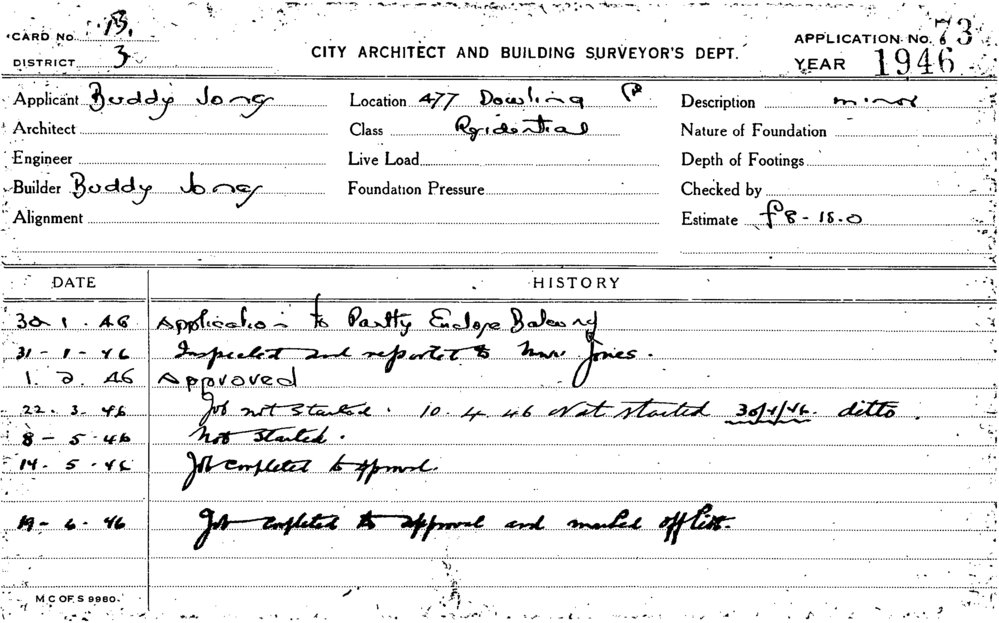 CARD No. B.
DISTRICT 3
CITY ARCHITECT AND BUILDING SURVEYOR'S DEPT.
APPLICATION No. 73
YEAR 1946
Applicant Buddy Jong
Location 477 Dowling
Description minor
Architect
Class Residential
Nature of Foundation
Engineer
Live Load
Depth of Footings
Builder Buddy Jong
Foundation Pressure
Checked by
Alignment
Estimate £8-18-0
DATE HISTORY
30 1. 46 Application to Partly Enclose Balcony
31-1-46 Inspected and reported to Jones.
1. 2. 46 Approved
22. 3. 46 Job not started. 10. 4. 46 Not started 30/4/46. ditto.
8-5-46 Not started.
14. 5. 46 Job completed to approval.
19-6-46 Job completed to approval and marked off list.
M C OF S 9980